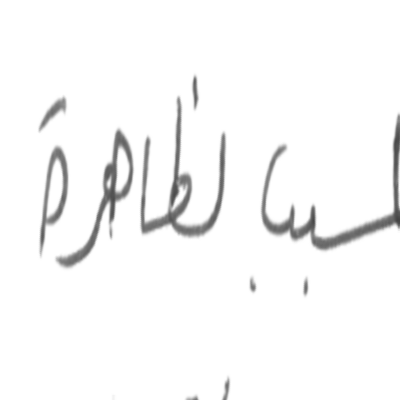 لسبب لظاهرة